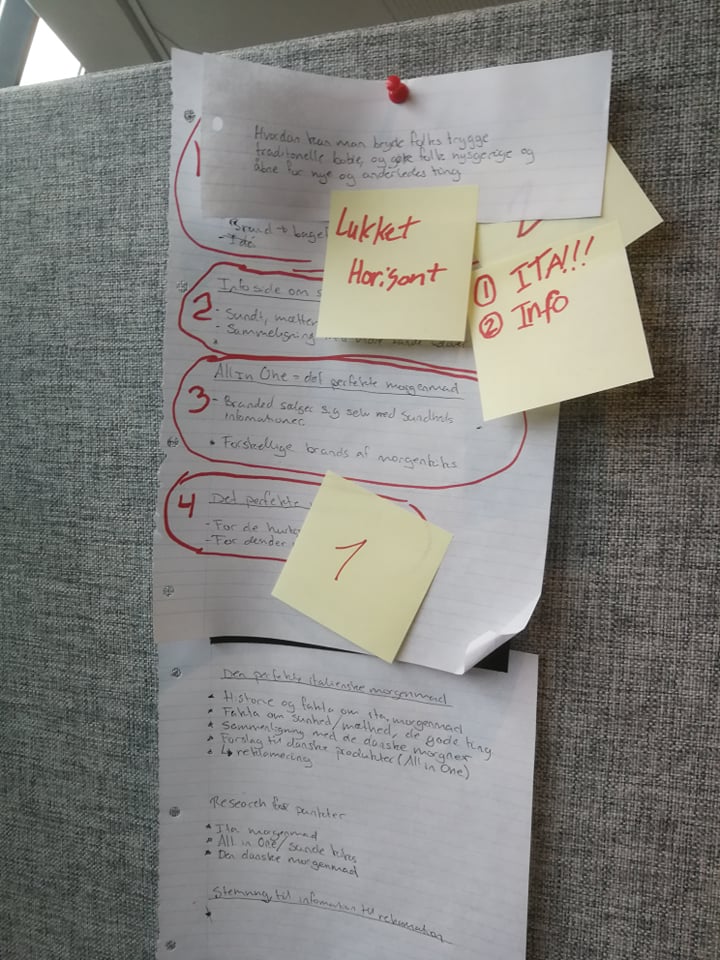 Hvordan kan man bryde folks trygge
traditionelle boble, og gøre folk nysgerrige og
åbne for nye og anderledes ting
Lukket
Horisont
① ITA!!!
② Info
1
Brand → bagel
- Idé
2
Infoside om s
- Sundt, mætter
- Sammeligning med
3
All In One = det perfekte morgenmad
- Branded sælger sig selv med sundheds
infomationer
* Forskellige brands af morgenkiks
4
Det perfekte
- For de hurt
- For dender
1
Den perfekte italienske morgenmad
* Historie og fakta om ita. morgenmad
* Fakta om sunhed/mæthed, de gode ting
* Sammenligning med de danske morgner
* Forslag til danske produkter (All in One)
* ↳ reklamering
Research
* Ita morgenmad
* All in One/sunde kiks
* Den danske morgenmad
Stemning til infomation til reklamation